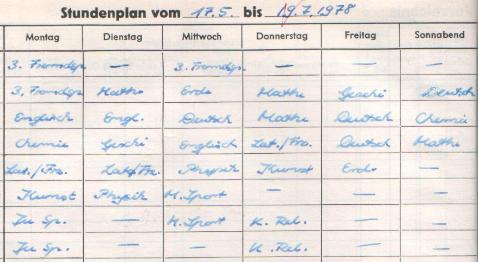 Stundenplan vom 17.5. bis 19.7.1978
Montag Dienstag Mittwoch Donnerstag Freitag Sonnabend
3. Fremdsp. — 3. Fremdsp. — — —
3. Fremdsp. Mathe Erde Mathe Geschi Deutsch
Englisch Engl. Deutsch Mathe Deutsch Chemie
Chemie Geschi Englisch Lat./Fra. Deutsch Mathe
Lat./Fra. Lat./Fra. Physik Kunst Erde —
Kunst Physik M. Sport — — —
Ju Sp. — M. Sport K. Rel. — —
Ju Sp. — — K. Rel. — —